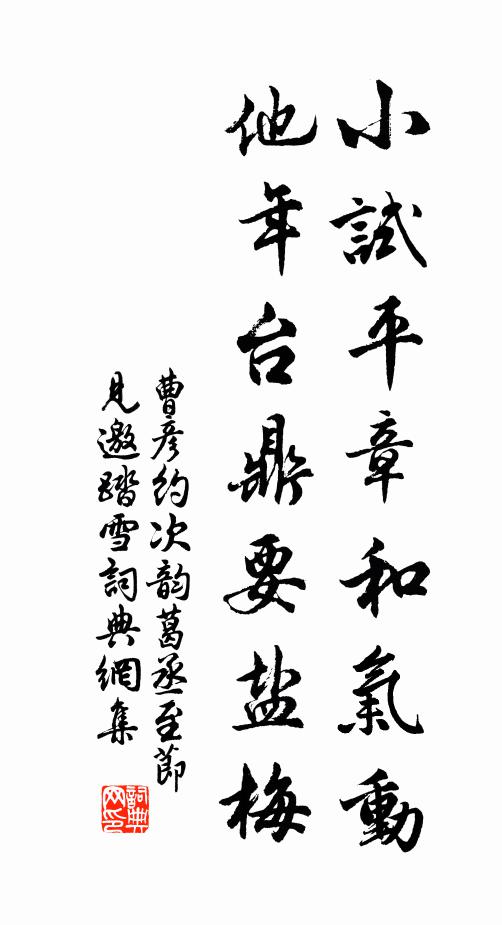 小試平章和氣動
他年台鼎要盐梅
曹彦約次韵葛丞至節
見邀踏雪詞典網集
詞典网印